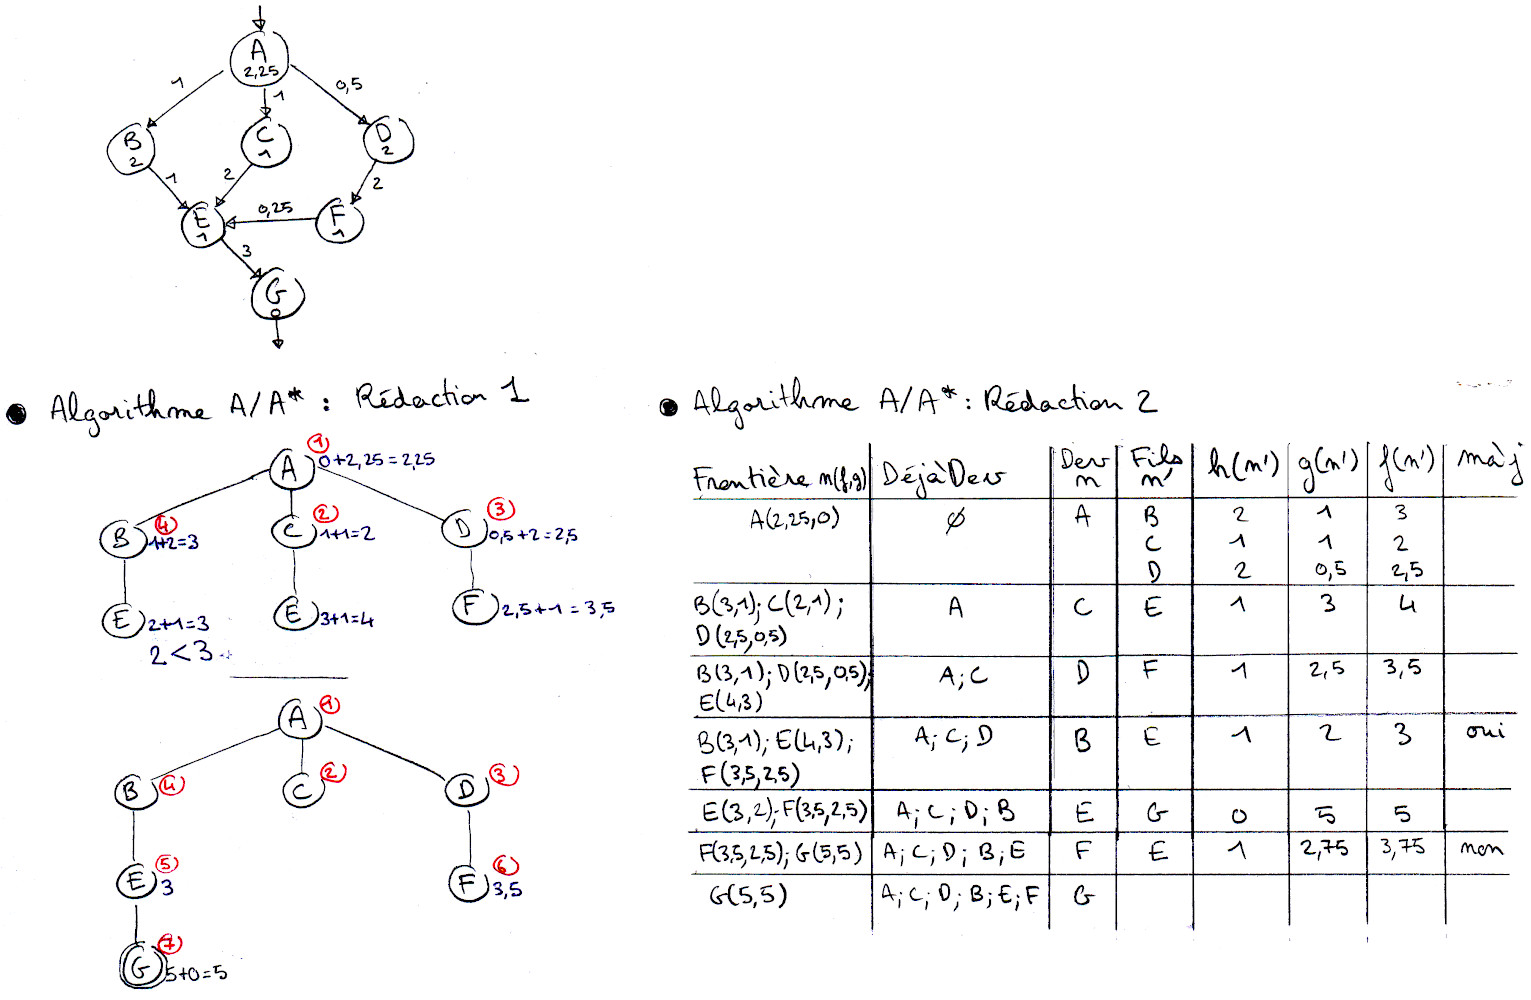 A
2,25
1
1
0,5
B
2
C
1
D
2
1
2
2
E
1
0,25
F
1
3
G
0
• Algorithme A/A* : Rédaction 1
A 1 0+2,25=2,25
B 4 1+2=3
C 2 1+1=2
D 3 0,5+2=2,5
E 2+1=3
E 3+1=4
F 2,5+1=3,5
2<3
A 1
B 4
C 2
D 3
E 5 3
F 6 3,5
G 7 5+0=5
• Algorithme A/A* : Rédaction 2
Frontière n(f,g) DéjàDev Dev n Fils n' h(n') g(n') f(n') màj
A(2,25,0) ∅ A B 2 1 3
C 1 1 2
D 2 0,5 2,5
B(3,1); C(2,1); A C E 1 3 4
D(2,5,0,5)
B(3,1); D(2,5,0,5); A; C D F 1 2,5 3,5
E(4,3)
B(3,1); E(4,3); A; C; D B E 1 2 3 oui
F(3,5,2,5)
E(3,2); F(3,5,2,5) A; C; D; B E G 0 5 5
F(3,5,2,5); G(5,5) A; C; D; B; E F E 1 2,75 3,75 non
G(5,5) A; C; D; B; E; F G